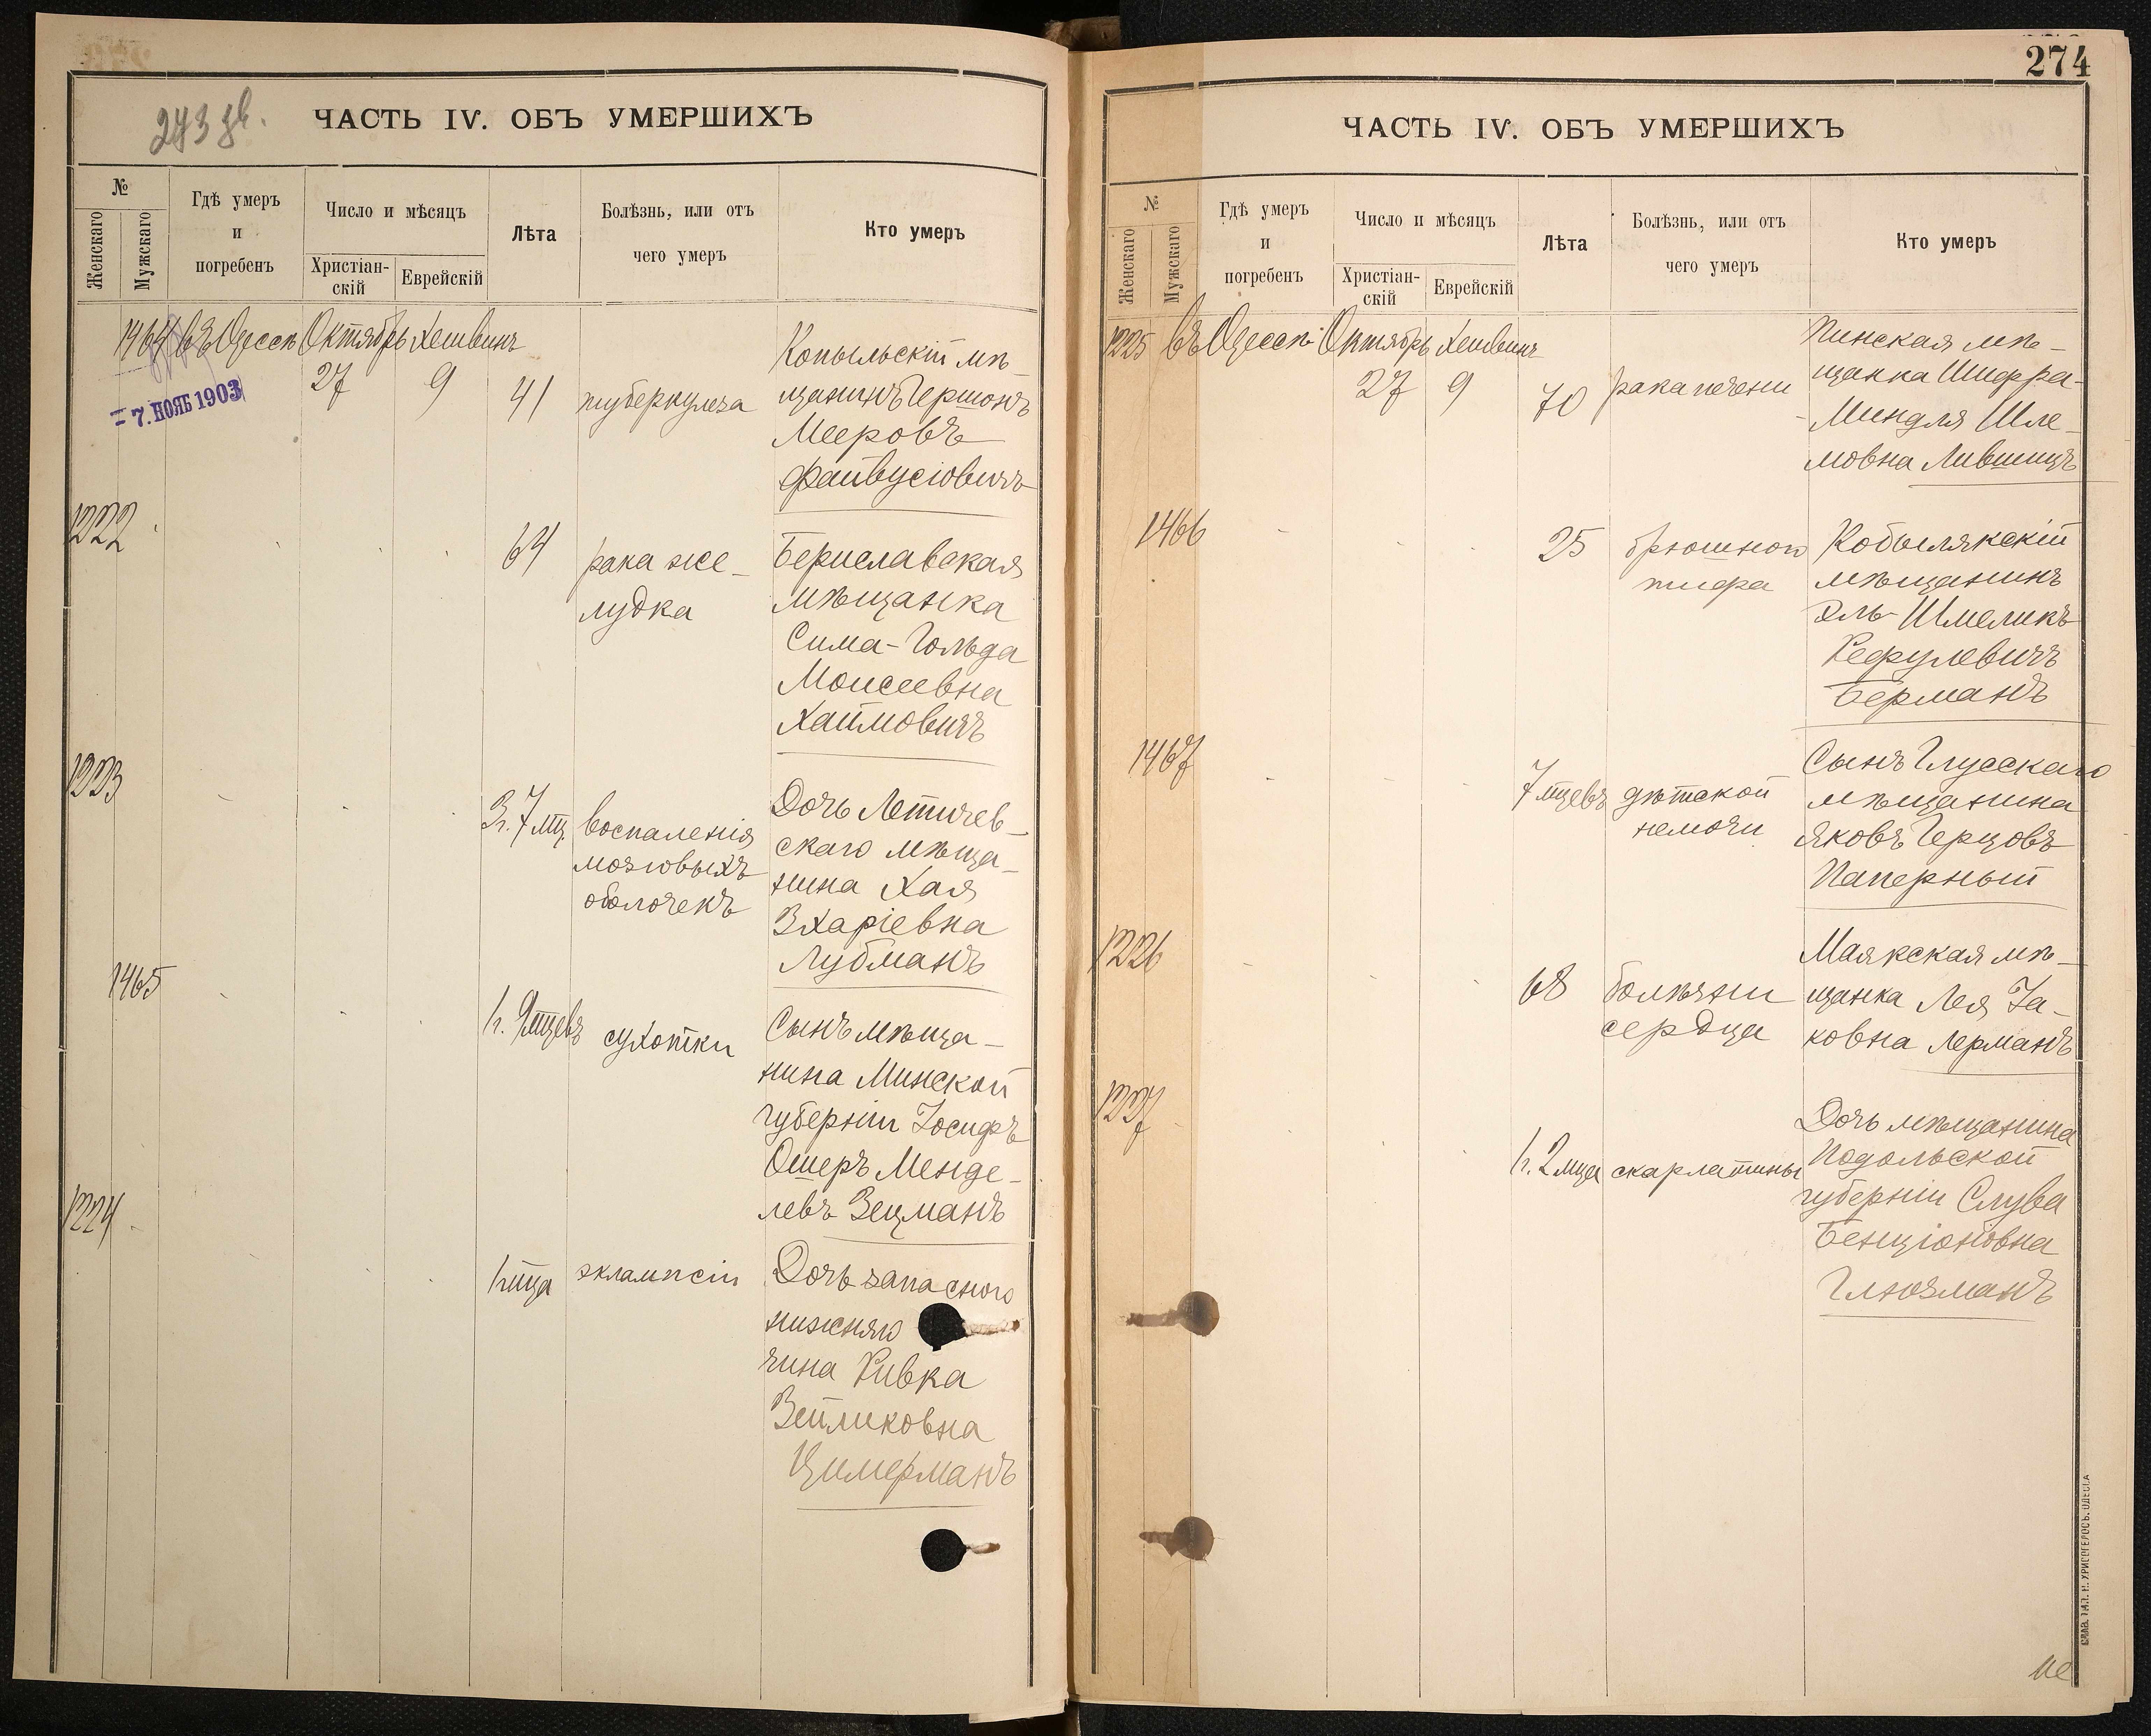 ЧАСТЬ IV. ОБЪ УМЕРШИХЪ
№
Женскаго
Мужскаго
Гдѣ умеръ
и
погребенъ
Число и мѣсяцъ
Христіан-
скій
Еврейскій
Лѣта
Болѣзнь, или отъ
чего умеръ
Кто умеръ
1464 въ Одессѣ Октябрь Хешвинъ
27 9 41 туберкулеза
- 7. НОЯБ 1903
Копыльскій мѣ-
щанинъ Гершонъ
Мееровъ
Файвусіовичъ
1222
64 рака же-
лудка
Бериславская
мѣщанка
Сима-Гольда
Моисеевна
Хаймовичъ
1223
3г. 7 мц. воспаленія
мозговыхъ
оболочекъ
Дочь Летичев-
скаго мѣща-
нина Хая
Зхаріевна
Лубманъ
1465
1г. 9 мцевъ сухотки
Сынъ мѣща-
нина Минской
губерніи Іосифъ
Ошеръ Менде-
левъ Зецманъ
1224
эклампсіи
Дочь запасного
нижняго
чина Ривка
Зейликовна
Цимерманъ
274
ЧАСТЬ IV. ОБЪ УМЕРШИХЪ
№
Женскаго
Мужскаго
Гдѣ умеръ
и
погребенъ
Число и мѣсяцъ
Христіан-
скій
Еврейскій
Лѣта
Болѣзнь, или отъ
чего умеръ
Кто умеръ
1225 въ Одессѣ Октябрь Хешвинъ
27 9 70 рака печени
Пинская мѣ-
щанка Шифра-
Миндля Шле-
мовна Лившицъ
1466
25 брюшного
тифа
Кобылякскій
мѣщанинъ
Эль-Шмеликъ
Рефулевичъ
Берманъ
1467
7 мцевъ дѣтской
немочи
Сынъ Глусскаго
мѣщанина
Яковъ Герцовъ
Паперный
1226
68 болѣзни
сердца
Маякская мѣ-
щанка Лея Іа-
ковна Лерманъ
1227
1г. 2 мца скарлатины
Дочь мѣщанина
Подольской
губерніи Слува
Бенціоновна
Глюзманъ